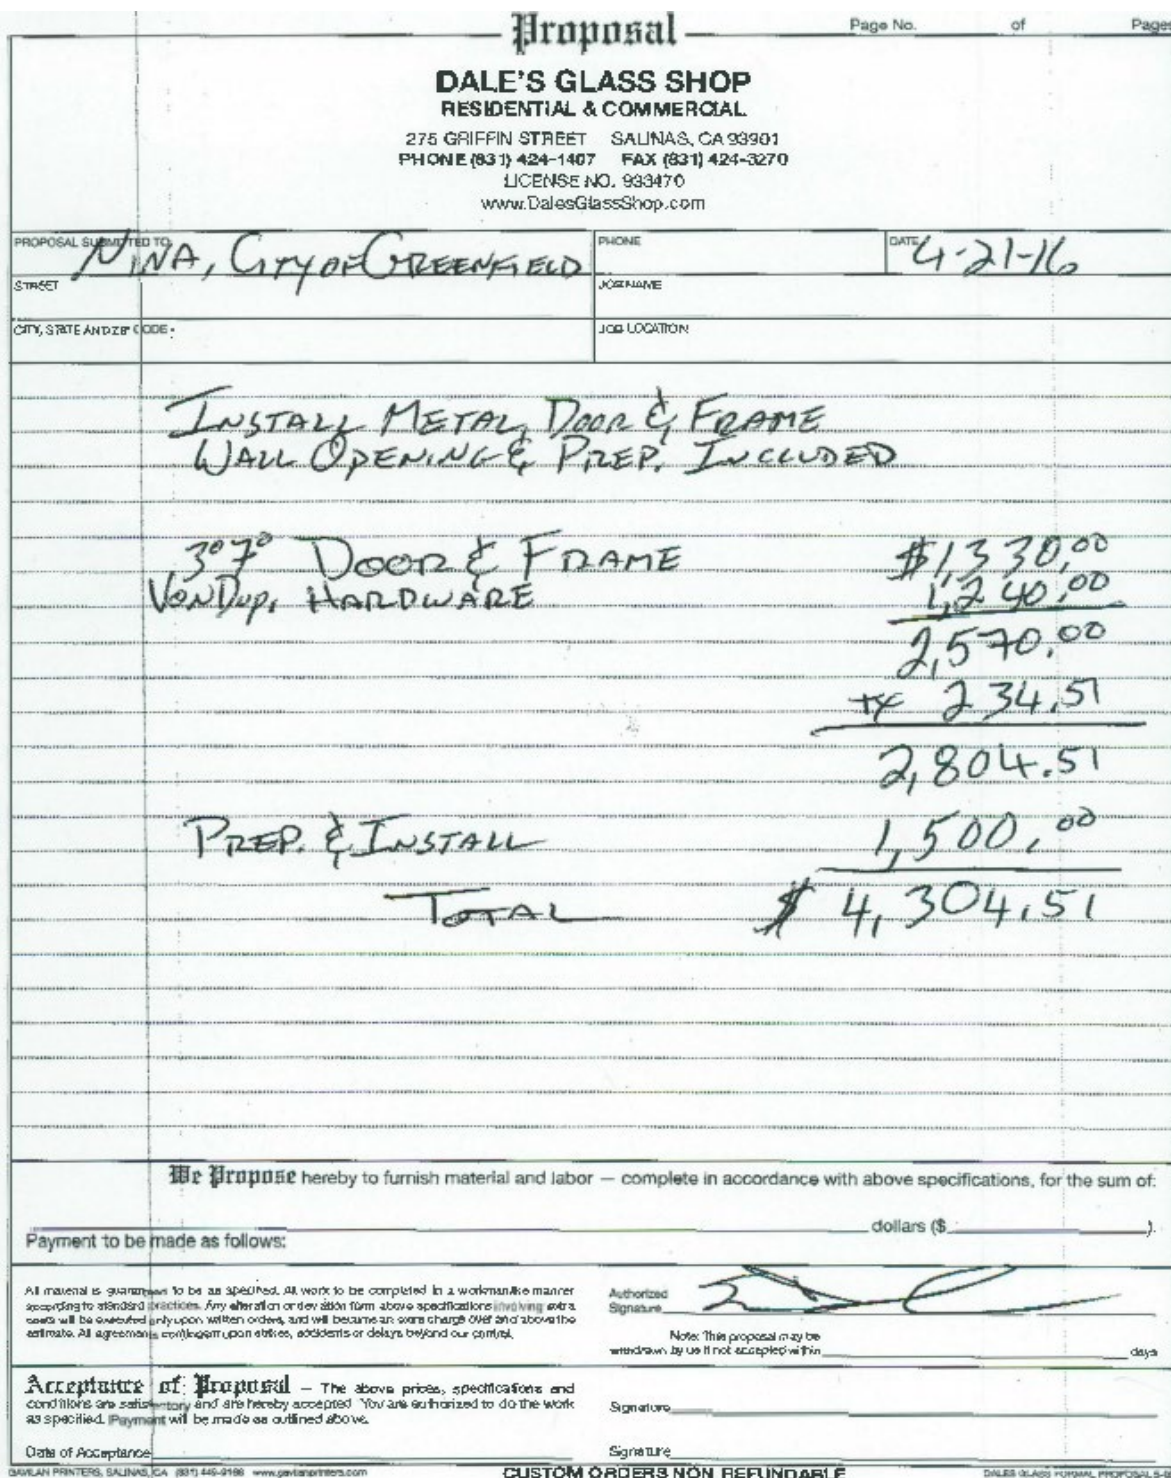 Proposal
Page No. of Pages
DALE'S GLASS SHOP
RESIDENTIAL & COMMERCIAL
275 GRIFFIN STREET SALINAS, CA 93901
PHONE (831) 424-1407 FAX (831) 424-3270
LICENSE NO. 933470
www.DalesGlassShop.com
PROPOSAL SUBMITTED TO NINA, CITY OF GREENFIELD
PHONE
DATE 4-21-16
STREET
JOB NAME
CITY, STATE AND ZIP CODE
JOB LOCATION
INSTALL METAL DOOR & FRAME
WALL OPENING & PREP. INCLUDED
3⁰7⁰ DOOR & FRAME $1,330.00
VONDUP. HARDWARE 1,240.00
2,570.00
TX 234.51
2,804.51
PREP. & INSTALL 1,500.00
TOTAL $ 4,304.51
We Propose hereby to furnish material and labor — complete in accordance with above specifications, for the sum of:
dollars ($ ).
Payment to be made as follows:
All material is guaranteed to be as specified. All work to be completed in a workmanlike manner
according to standard practices. Any alteration or deviation form above specifications involving extra
costs will be executed only upon written orders, and will become an extra charge over and above the
estimate. All agreements contingent upon strikes, accidents or delays beyond our control.
Authorized
Signature
Note: This proposal may be
withdrawn by us if not accepted within days
Acceptance of Proposal — The above prices, specifications and
conditions are satisfactory and are hereby accepted. You are authorized to do the work
as specified. Payment will be made as outlined above.
Signature
Date of Acceptance
Signature
GAVILAN PRINTERS, SALINAS, CA (831) 449-9166 www.gavilanprinters.com
CUSTOM ORDERS NON REFUNDABLE
DALES GLASS FORMAL PROPOSAL